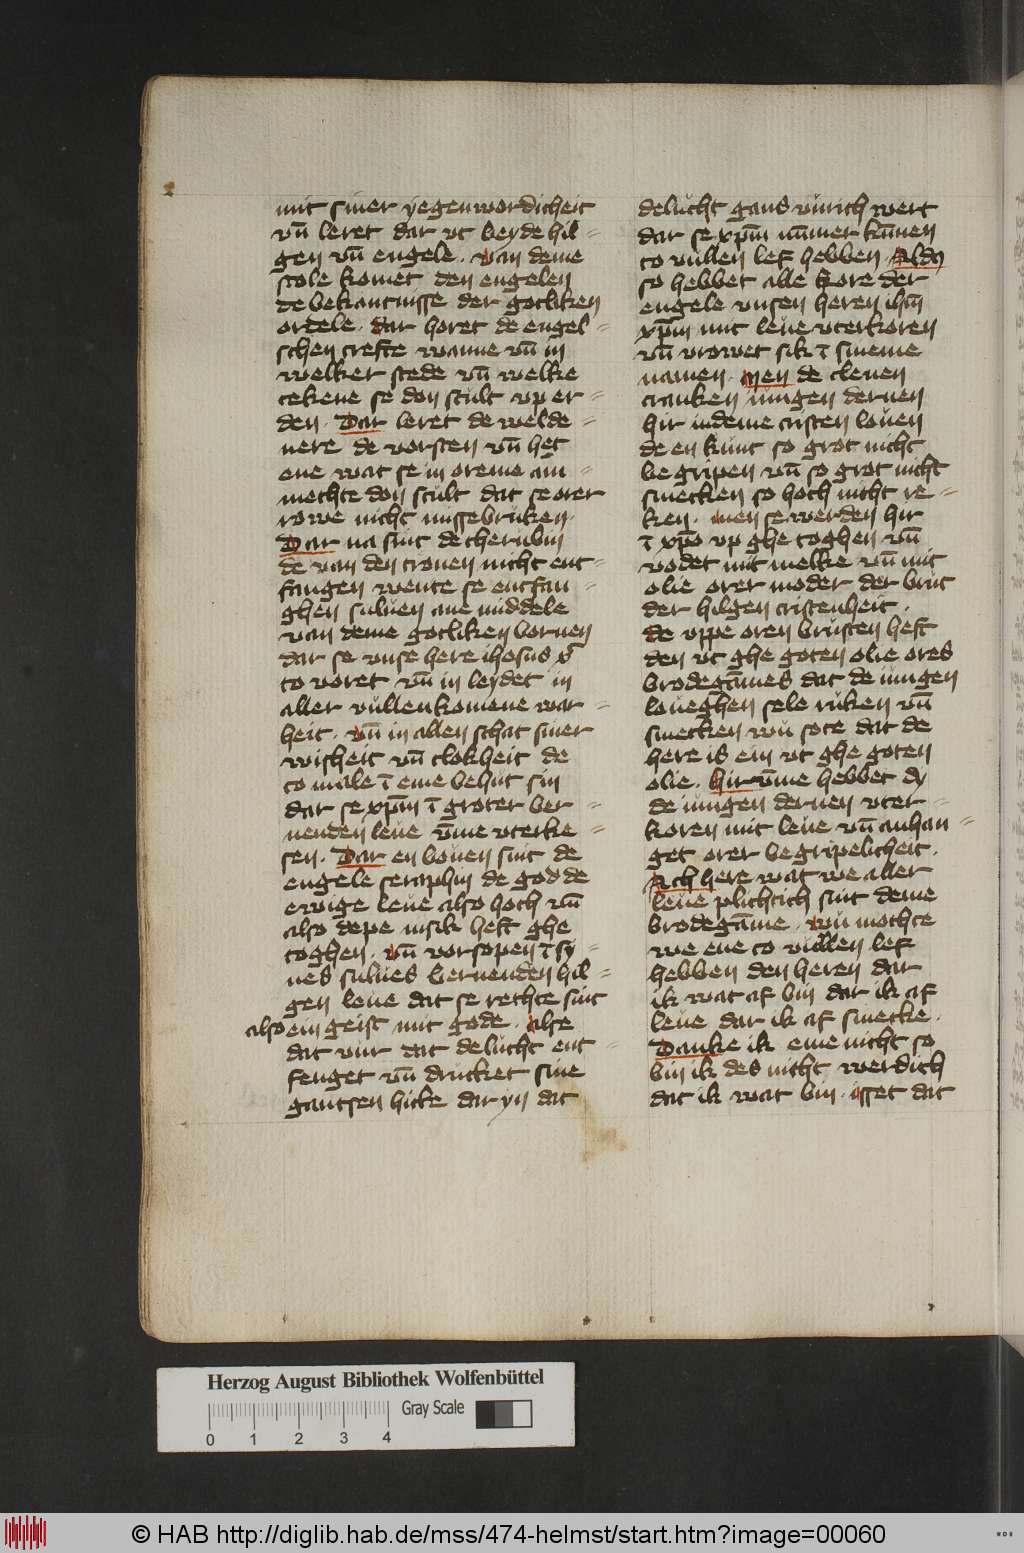 mit siner yegenwordicheit
vn̄ leret dar vt beyde hil=
gen vn̄ engele. van deme
stole komet den engelen
de bekantnisse der gotliken
ordele. dar horet de engel=
schen crefte wanne vn̄ in
welker stede vn̄ welke
tekene se don scult vp er=
den. Dar leret de welde=
nere de vorsten vn̄ het
ene wat se in oreme am=
mechte don scult dat se orer
rowe nicht missebruken.
Dar na sint de cherubin
de van den tronen nicht ent=
fangen wente se entfan=
ghen suluen ane middele
van deme gotliken bornen
dar se vnse here ihesus xp̄
to voret vn̄ in leydet in
aller vullenkomene war=
heit. vn̄ in allen schat siner
wisheit vn̄ clokheit de
to male ī eme behut sin
dar se xp̄m ī groter ber=
nenden leue v̄me vterke=
sen. Dar en bouen sint de
engele seraphin de god de
ewige leue also hoch vn̄
also depe in sik heft ghe
toghen. vn̄ vorsopen ī sy=
nes sulues bernenden hil=
gen leue dat se rechte sint
also ein geist mit gode. alse
dat vur dat de lucht ent=
fenget vn̄ drucket sine
gantsen hicke dar yn dat
de lucht gans vurich wert
dar se xp̄m um̄mer kun̄en
to vullen lef hebben. Aldꝰ
so hebbet alle kore der
engele vnsen heren ihm̄
xp̄m mit leue vterkoren
vn̄ vrowet sik ī sineme
namen. Men de clenen
cranken iungen dernen
hir in deme cristen louen
de en kunt so grot nicht
begripen vn̄ so grot nicht
smecken so hoch nicht re=
ken. men se werden hir
ī xp̄o vp ghe toghen vn̄
vodet mit melke vn̄ mit
olie orer moder der brut
der hilgen cristenheit.
de vppe oren brusten heft
den vt ghe goten olie ores
brodegāmes dat de iungen
loueghen sele ruken vn̄
smecken wu sote dat de
here is ein vt ghe goten
olie. hir v̄me hebbet dy
de iungen dernen vter=
koren mit leue vn̄ anhan=
get orer begripelicheit.
Ach here wat we aller
leue plichtich sint deme
brodegāme. wu mochte
we ene to vullen lef
hebben den heren dar
ik wat af bin dar ik af
leue dar ik af smecke.
Danke ik eme nicht so
bin ik des nicht werdich
dat ik wat bin. isset dat
Herzog August Bibliothek Wolfenbüttel
Gray Scale
0 1 2 3 4
© HAB http://diglib.hab.de/mss/474-helmst/start.htm?image=00060